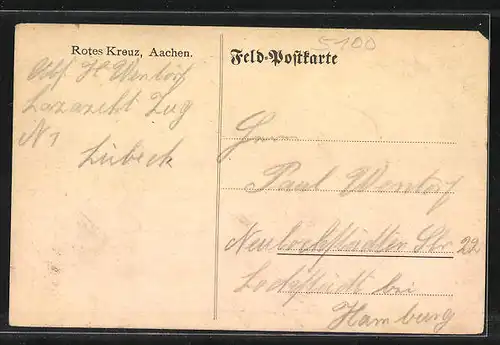 Rotes Kreuz, Aachen.
Abs. H. Wendorf
Lazarett Zug
N 1
Lübeck
5100
Feld-Postkarte
Herrn
Paul Wendorf
Neulockstädter Str 22
Lockstädt bei
Hamburg